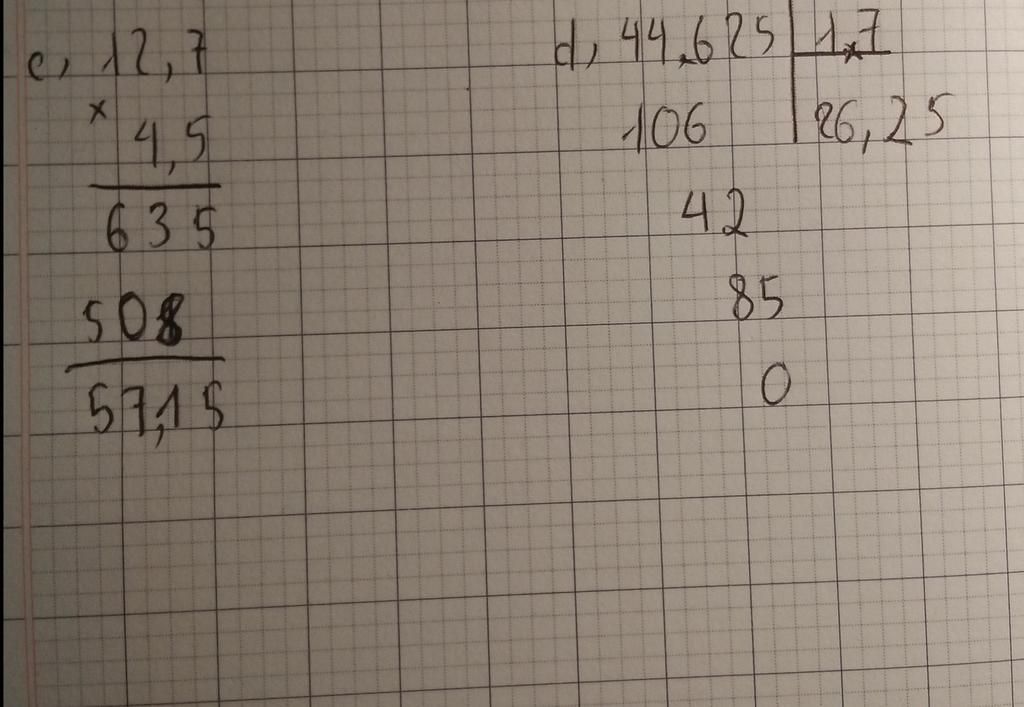 c, 12,7
×
4,5
635
508
57,15
d, 44,625 1,7
106 26,25
42
85
0